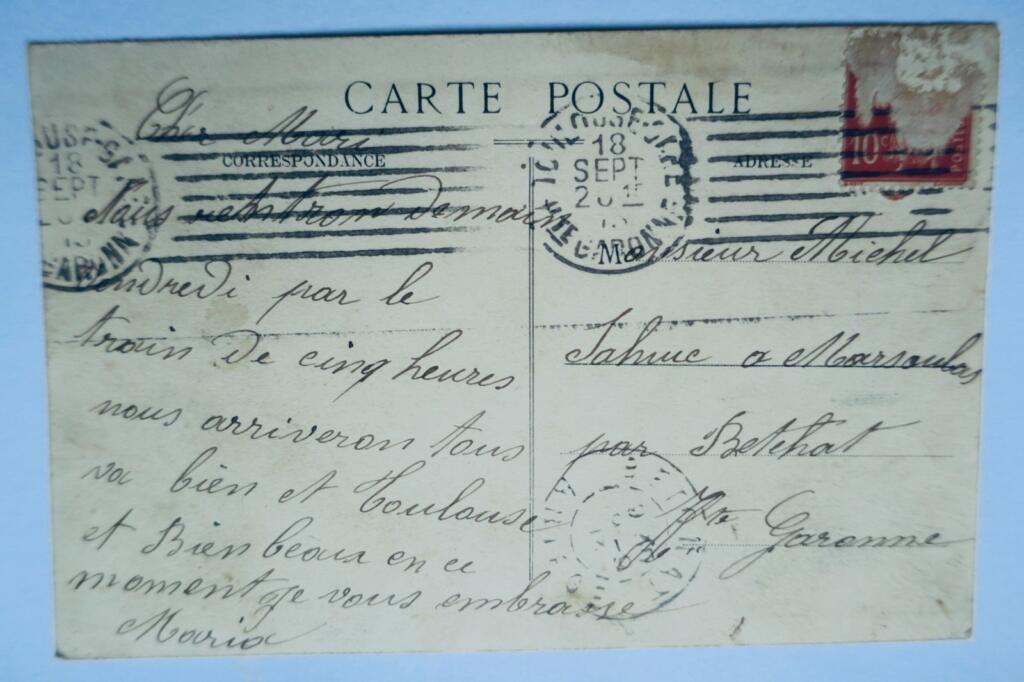 CARTE POSTALE
CORRESPONDANCE
ADRESSE
Cher Mari
Nous rentron demain
vendredi par le
train de cinq heures
nous arriveron tous
va bien et Toulouse
et Bien beaux en ce
moment je vous embrasse
Maria
TOULOUSE GARE
18
SEPT
20 15
HTE GARONNE
OUSE GA
18
SEPT
GARONN
10
POSTES
Monsieur Michel
a Marsoulas
par Betchat
Hte Garonne